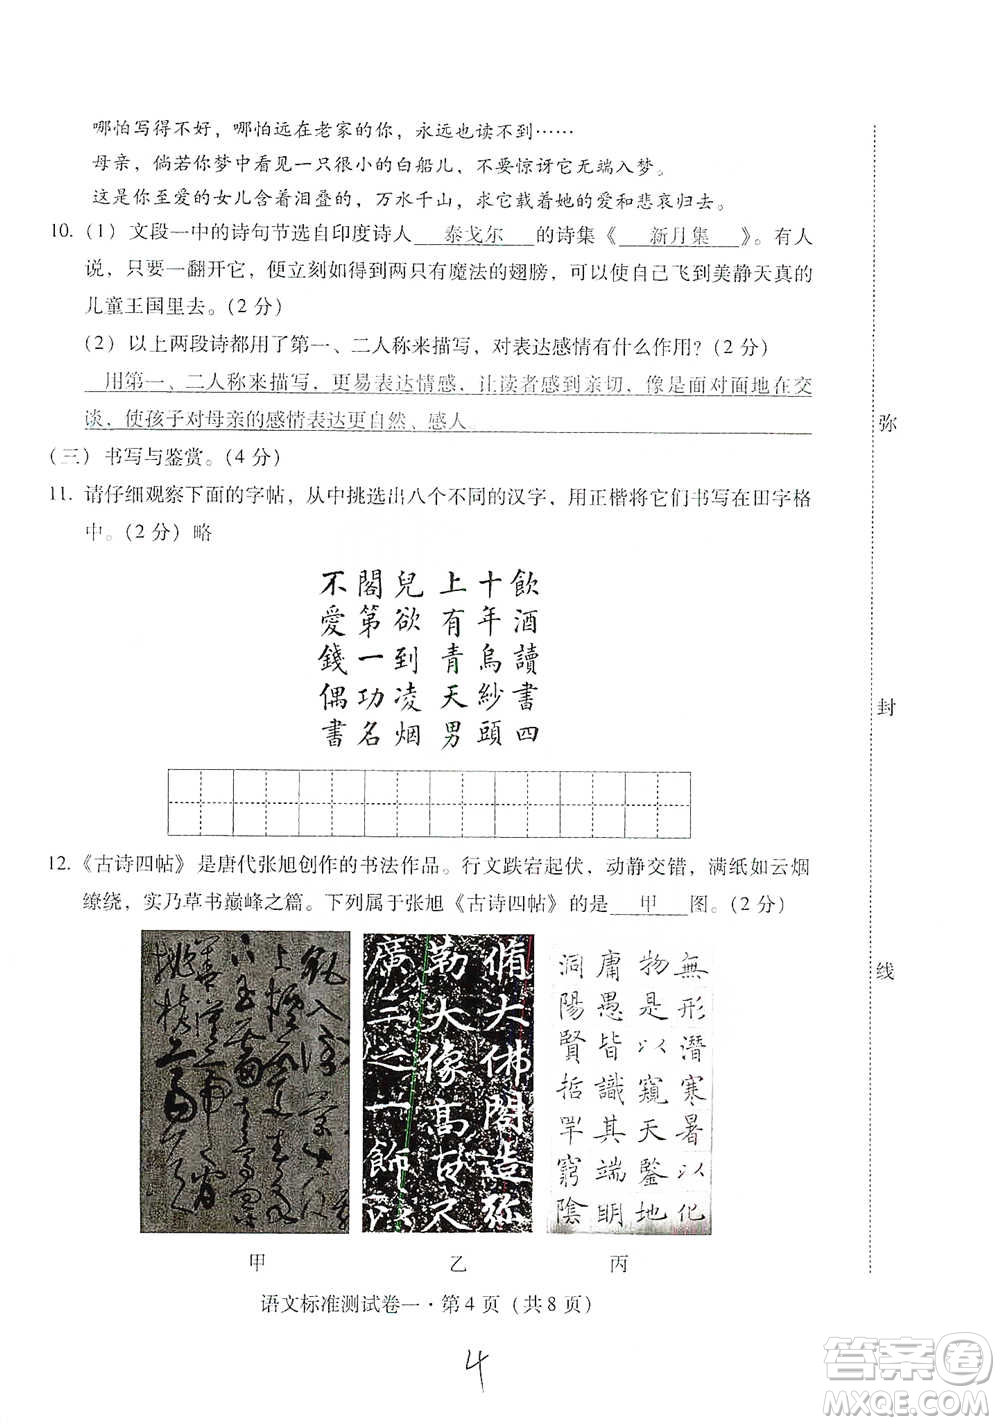 哪怕写得不好，哪怕远在老家的你，永远也读不到……
母亲，倘若你梦中看见一只很小的白船儿，不要惊讶它无端入梦。
这是你至爱的女儿含着泪叠的，万水千山，求它载着她的爱和悲哀归去。
10. (1) 文段一中的诗句节选自印度诗人 泰戈尔 的诗集《 新月集 》。有人
说，只要一翻开它，便立刻如得到两只有魔法的翅膀，可以使自己飞到美静天真的
儿童王国里去。(2 分)
(2) 以上两段诗都用了第一、二人称来描写，对表达感情有什么作用？(2 分)
用第一、二人称来描写，更易表达情感，让读者感到亲切，像是面对面地在交
谈，使孩子对母亲的感情表达更自然、感人
(三) 书写与鉴赏。(4 分)
11. 请仔细观察下面的字帖，从中挑选出八个不同的汉字，用正楷将它们书写在田字格
中。(2 分) 略
飲酒讀書四
十年烏紗頭
上有青天男
兒欲到凌烟
閣第一功名
不愛錢偶書
12.《古诗四帖》是唐代张旭创作的书法作品。行文跌宕起伏，动静交错，满纸如云烟
缭绕，实乃草书巅峰之篇。下列属于张旭《古诗四帖》的是 甲 图。(2 分)
脩大佛閣造弥
勒大像高百尺
廣三之一飾以
無形潛寒暑以化
物是以窺天鑒地
庸愚皆識其端明
洞陽賢哲罕窮陰
甲
乙
丙
语文标准测试卷一·第 4 页（共 8 页）
4
弥
封
线
答案圈
MXQE.COM